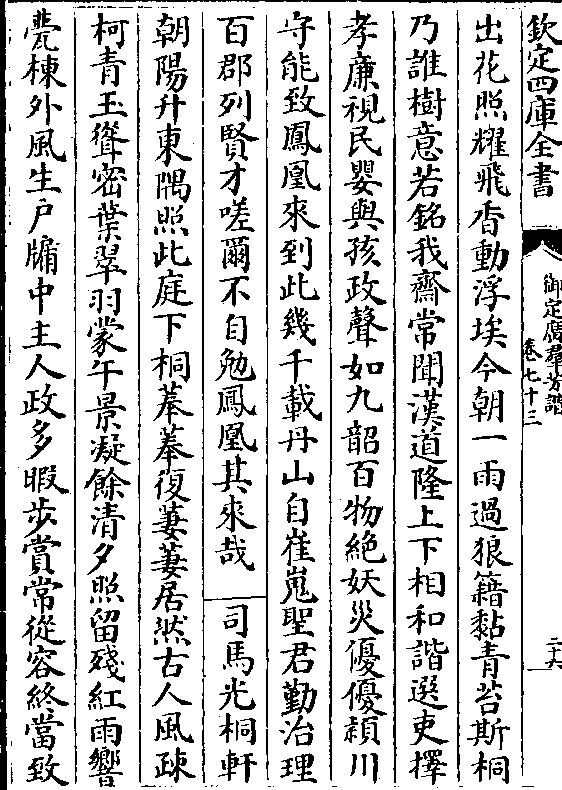 欽定四庫全書
御定廣羣芳譜
卷七十三
二十六
出花照耀飛香動浮埃今朝一雨過狼籍黏青苔斯桐
乃誰樹意若銘我齋常聞漢道隆上下相和諧選吏擇
孝廉視民嬰與孩政聲如九韶百物絶妖災優優潁川
守能致鳳凰來到此幾千載丹山自崔嵬聖君勤治理
百郡列賢才嗟爾不自勉鳳凰其來哉 司馬光桐軒
朝陽升東隅照此庭下桐菶菶復萋萋居然古人風疎
柯青玉聳密葉翠羽蒙午景凝餘清夕照留殘紅雨響
甍棟外風生户牖中主人政多暇步賞常從容終當致